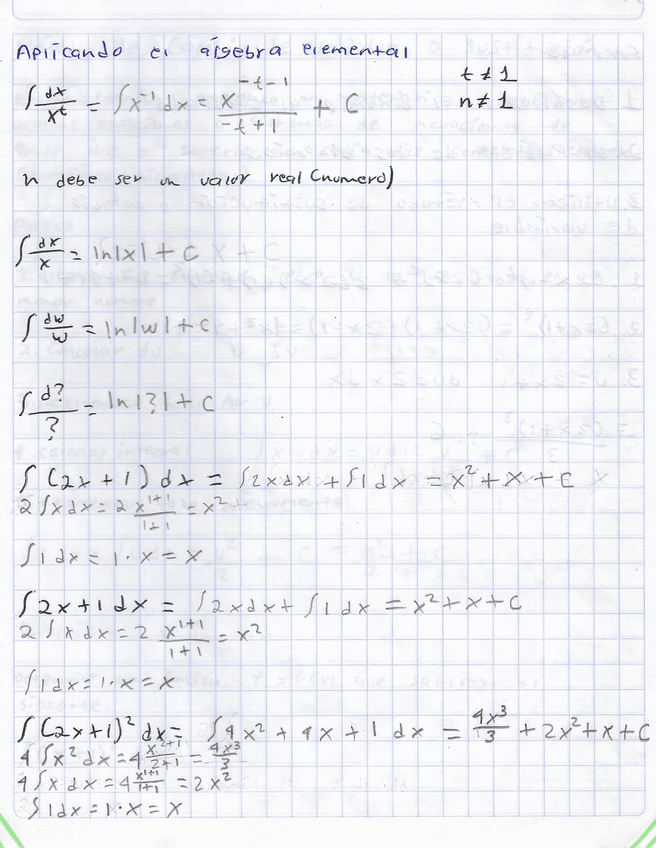 Aplicando el álgebra elemental
∫ dx/x^t = ∫ x^-1 dx = x^(-t-1)/(-t+1) + C    t ≠ 1
n ≠ 1
n debe ser un valor real (numero)
∫ dx/x = ln|x| + C
∫ dw/w = ln|w| + C
∫ d?/? = ln|?| + C
∫ (2x + 1) dx = ∫2xdx + ∫1dx = x² + x + C
2∫xdx = 2 x^(1+1)/(1+1) = x²
∫1dx = 1·x = x
∫2x+1 dx = ∫2xdx + ∫1dx = x² + x + C
2∫xdx = 2 x^(1+1)/(1+1) = x²
∫1dx = 1·x = x
∫(2x+1)² dx = ∫4x² + 4x + 1 dx = 4x³/3 + 2x² + x + C
4∫x² dx = 4 x^(2+1)/(2+1) = 4x³/3
4∫xdx = 4 x^(1+1)/(1+1) = 2x²
∫1dx = 1·x = x